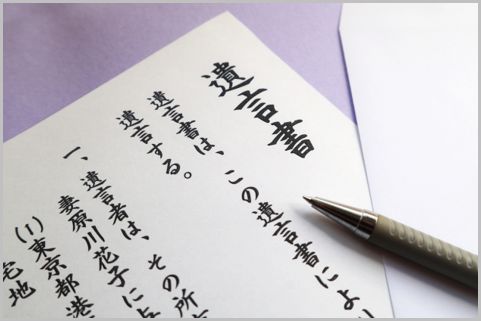 遺言書
遺言書は、この遺言書により
遺言する。
一、遺言者は、その所
妻原川花子に
(1)東京都港
宅地